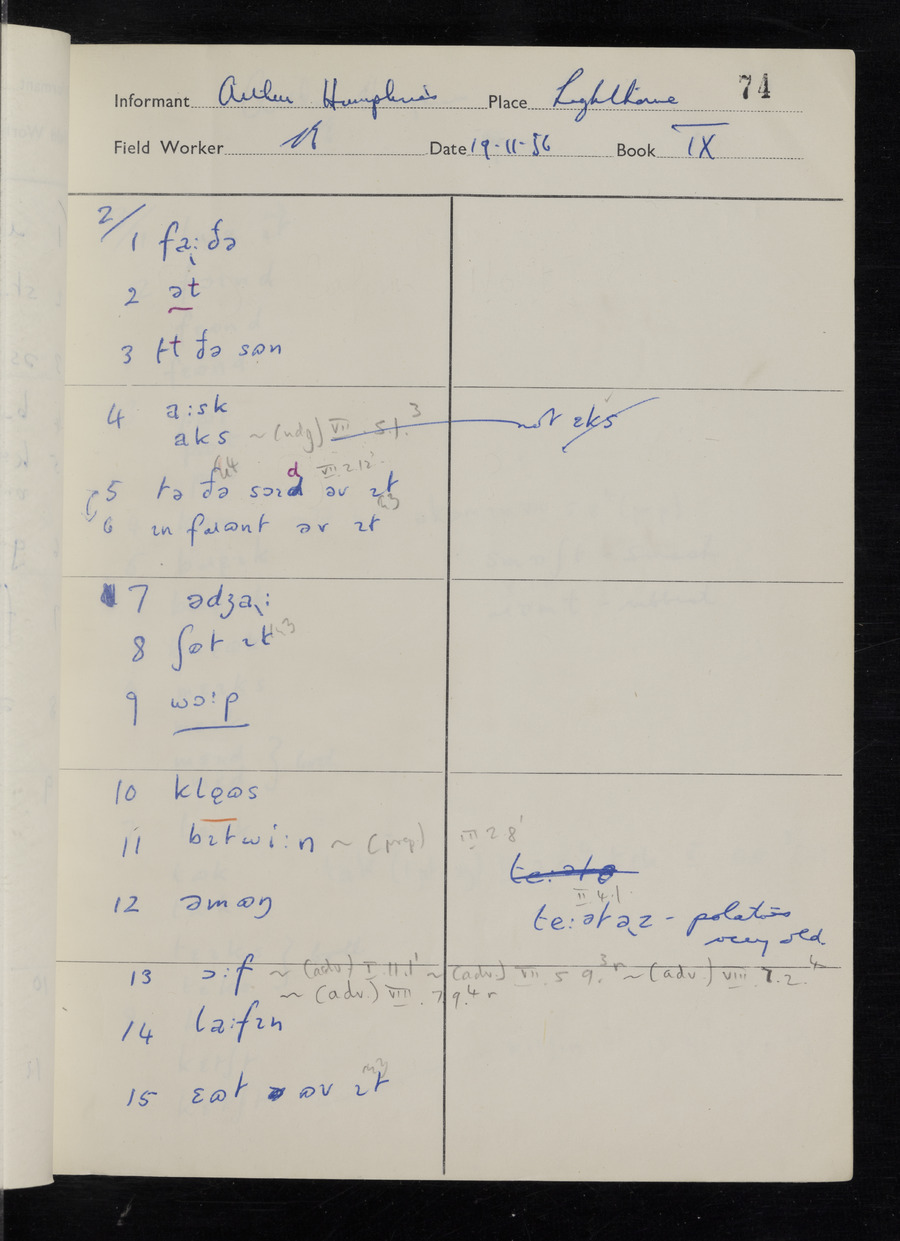 74
Informant Arthur Humphries Place Lighthorne
Field Worker Date 19-11-56 Book IX
2/
1 fa̢: ðə
2 ət
3 tt ðə sɷn
4 a:sk
aks ~ (ndg) VII . 5.1.3 not ɛks
VII 2.12'
5 tə ðə sɔɪd əv ɪt
6 ɪn fɹɷnt əv ɪt
7 ədʒa̢:
8 ʃɷt ɪt
9 wɔ:p
10 klęɷs
11 bɪtwi:n ~ (prep) III 2 8'
te:ətə
II 4.1.
12 əmɷŋ
te:ətəz - potatoes
very old.
13 ɔ:f ~ (adv) I 11.1' ~ (adv.) VII . 5 9.3 r ~ (adv.) VIII 7.2.4
~ (adv.) VIII . 7 9.4 r
14 la:fɪn
15 ɛɷt əv ɪt